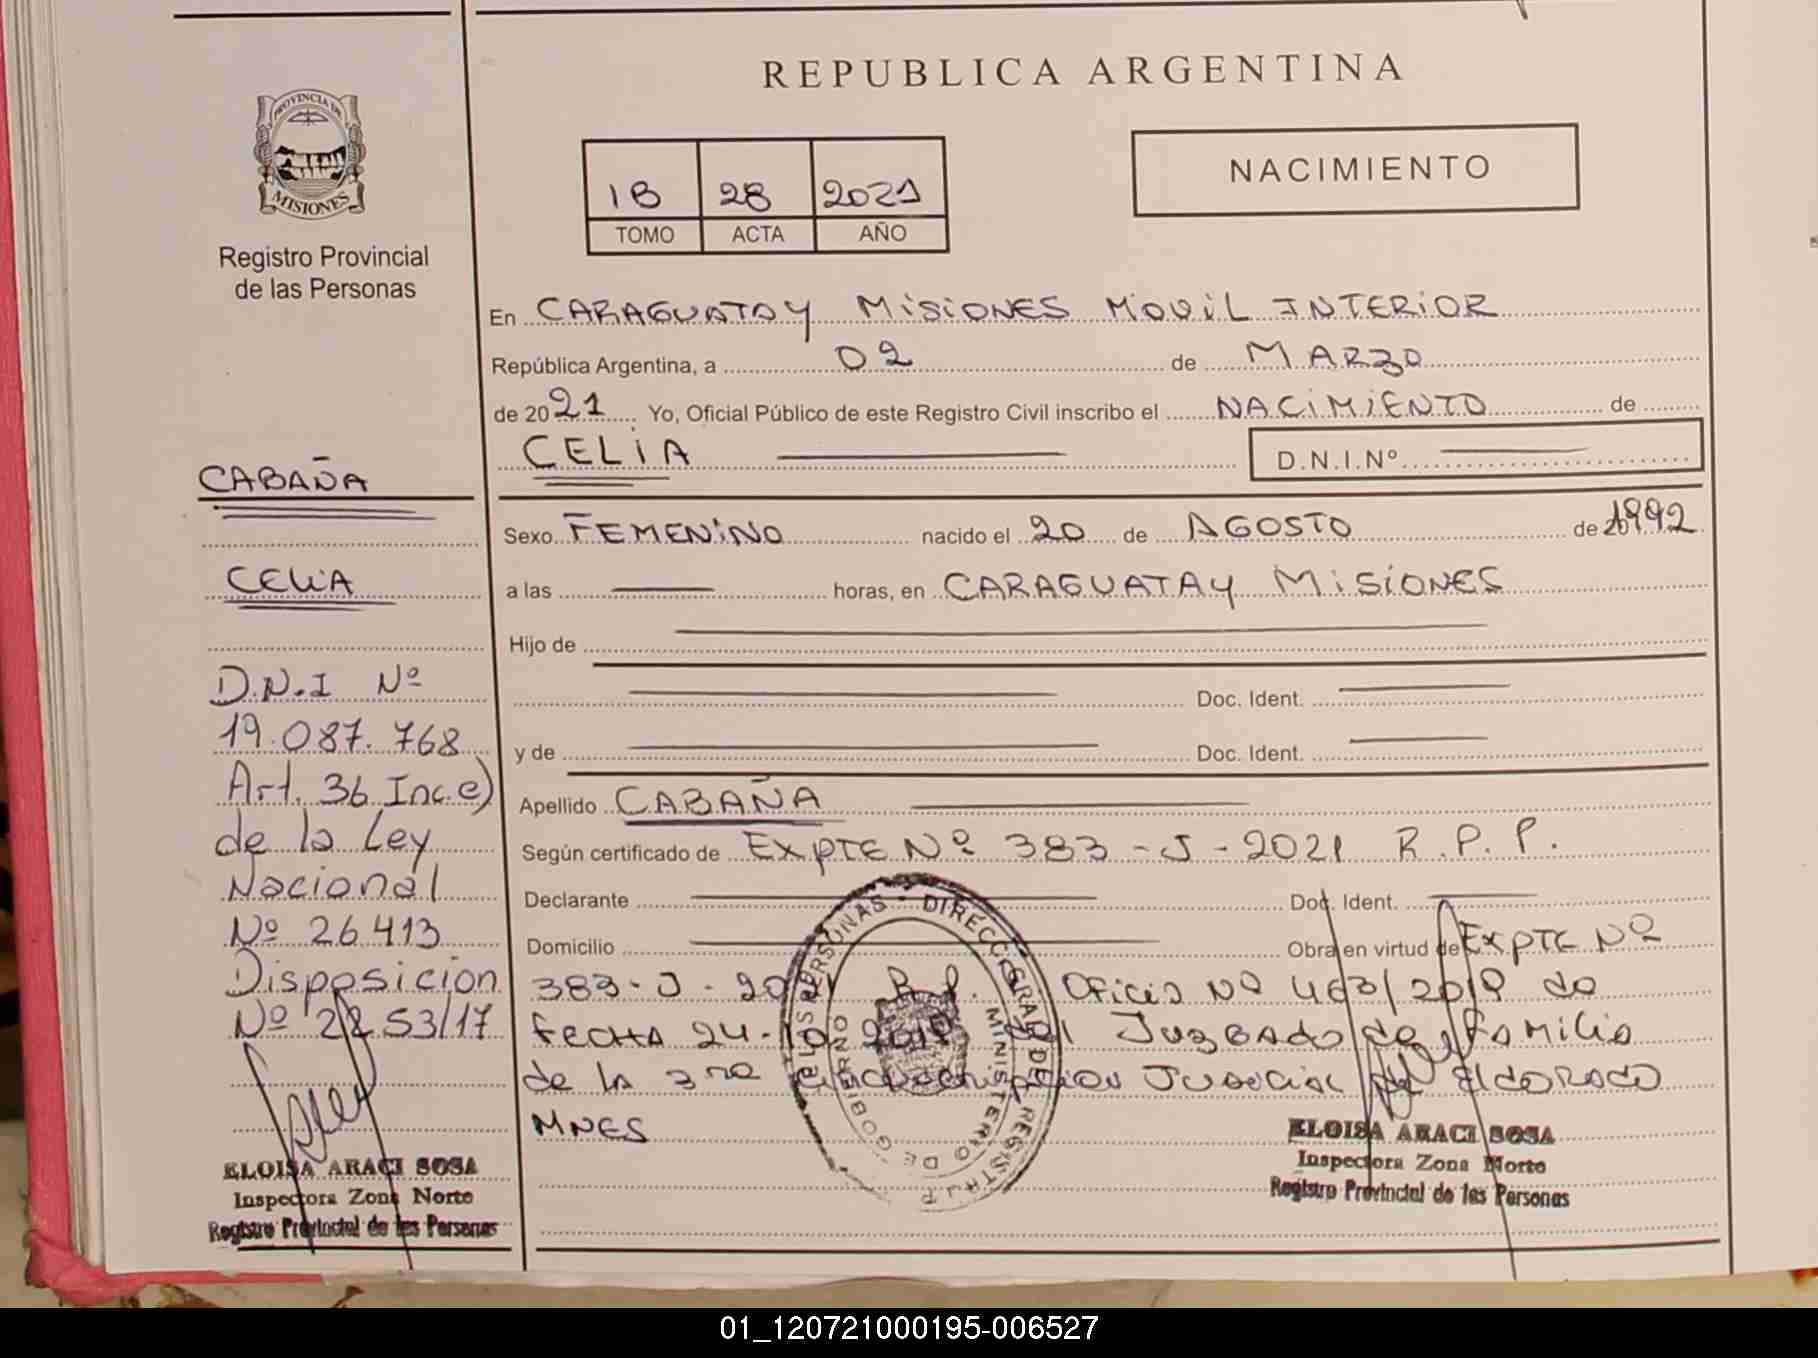 REPUBLICA ARGENTINA
PROVINCIA DE
MISIONES
Registro Provincial
de las Personas
1B 28 2021
TOMO ACTA AÑO
NACIMIENTO
En CARAGUATAY MiSiONES MOViL INTERIOR
República Argentina, a 02 de MARZO
de 2021 Yo, Oficial Público de este Registro Civil inscribo el NACiMiENTO de
CELiA
D.N.I.Nº
Sexo FEMENiNO nacido el 20 de AGOSTO de 1992
a las horas, en CARAGUATAY MiSiONES
Hijo de
Doc. Ident.
y de Doc. Ident.
Apellido CABAÑA
Según certificado de EXPTE Nº 383-J-2021 R.P.P.
Declarante Doc. Ident.
Domicilio Obra en virtud de EXPTE Nº
383-J-2021 R.P. Oficio Nº 463/2019 de
fecha 24-10-2019 del Juzgado de familia
de la 3ra circunscripcion Judicial de Eldorado
MNES
CABAÑA
CELiA
D.N.I Nº
19.087.768
Art. 36 Inc.e)
de la Ley
Nacional
Nº 26413
Disposicion
Nº 2253/17
ELOISA ARACI SOSA
Inspectora Zona Norte
Registro Provincial de las Personas
ELOISA ARACI SOSA
Inspectora Zona Norte
Registro Provincial de las Personas
MINISTERIO DE GOBIERNO
01_120721000195-006527